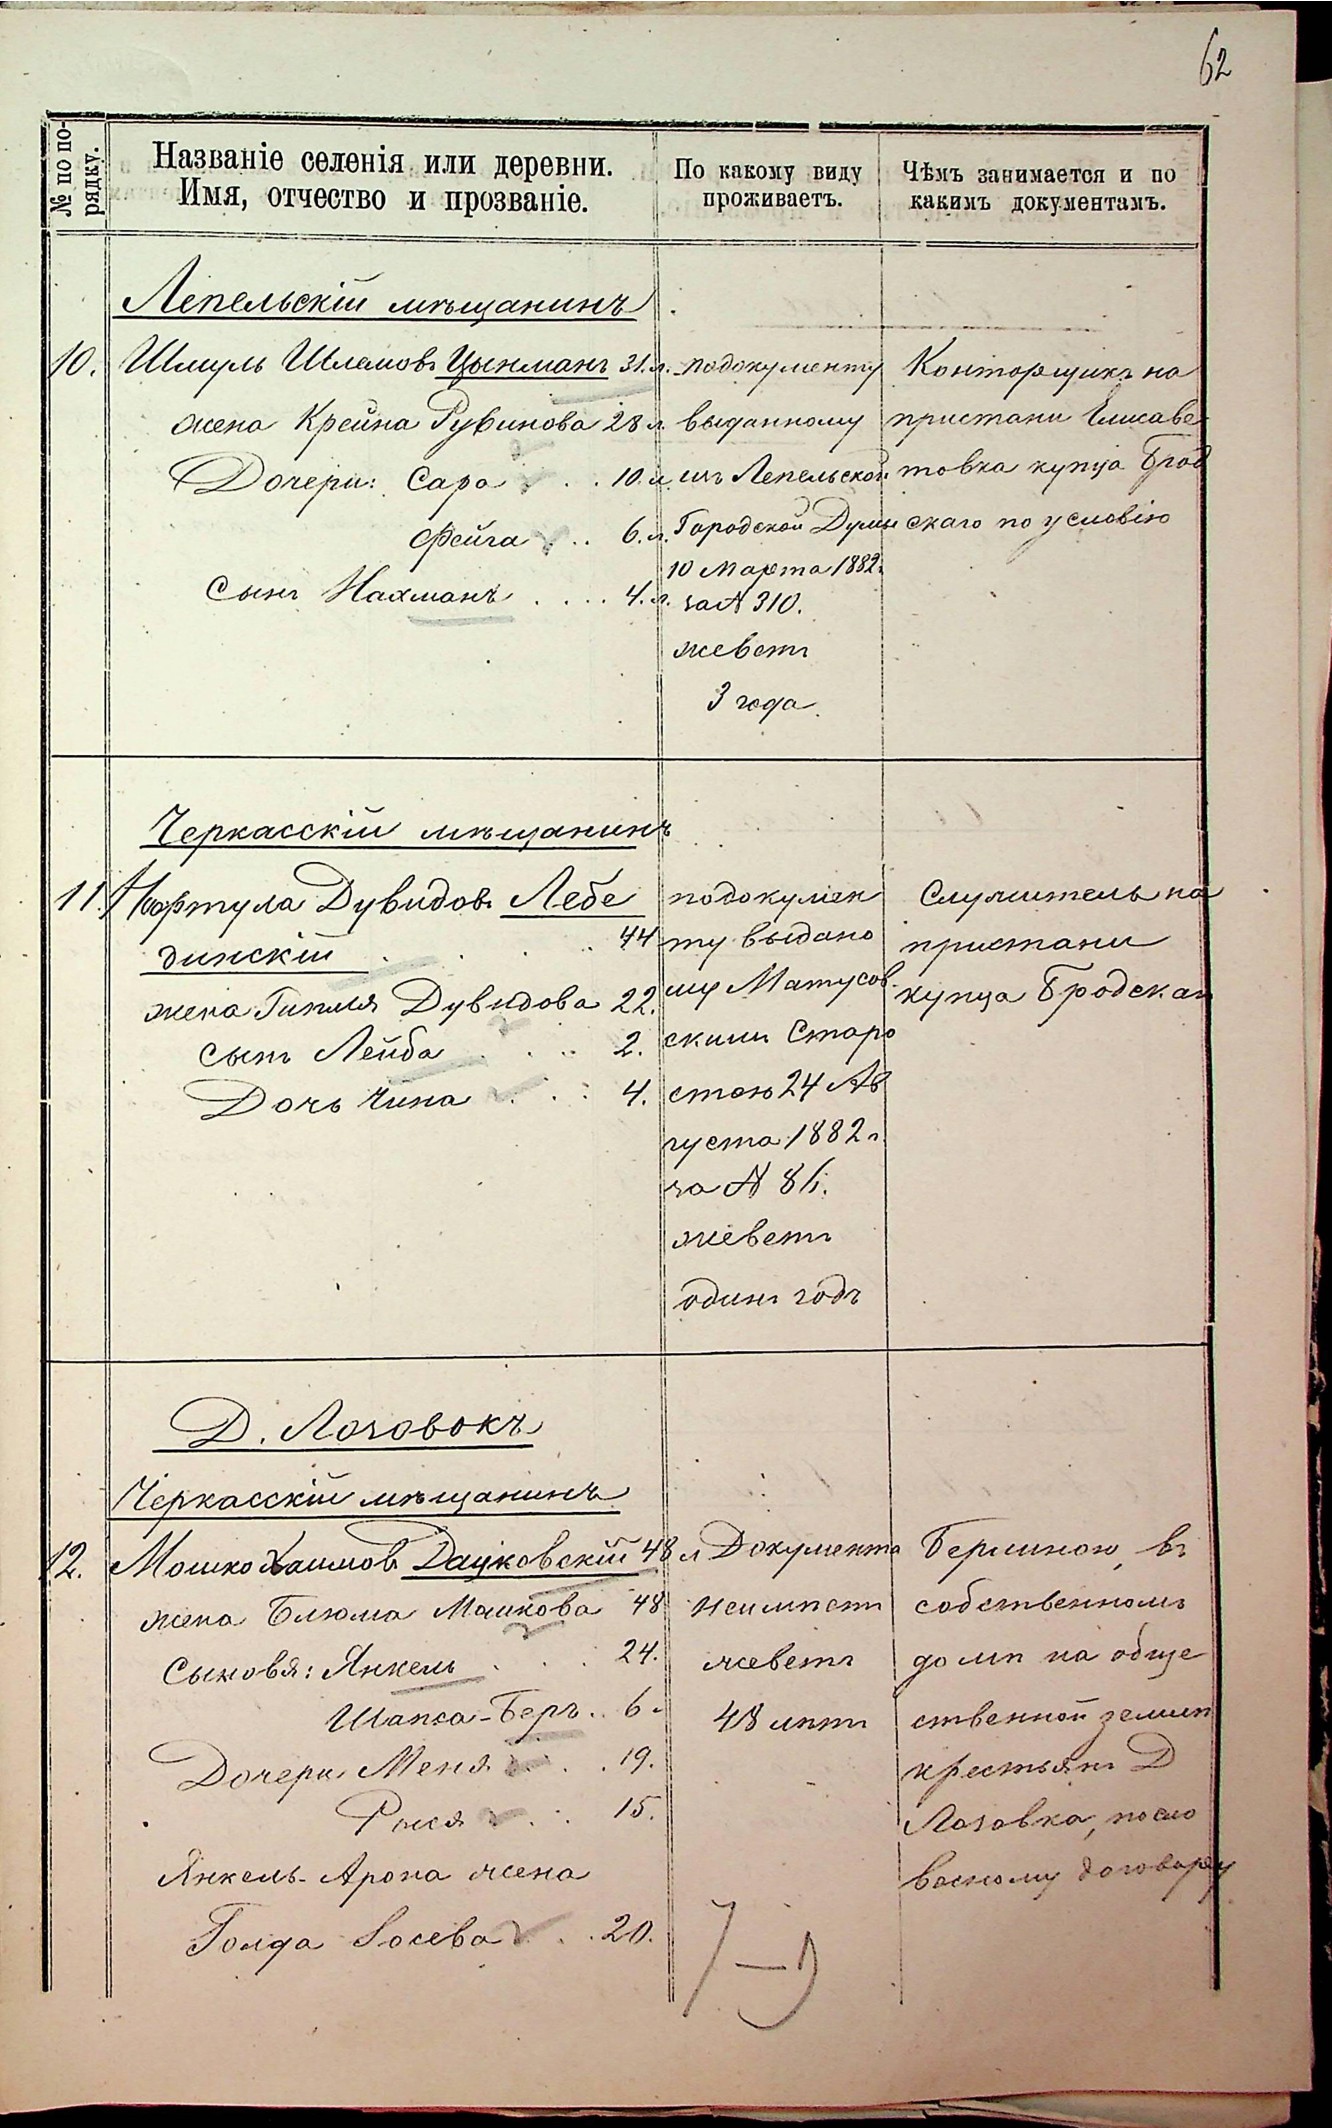 62
№ по по-
рядку.
Названіе селенія или деревни.
Имя, отчество и прозваніе.
По какому виду
проживаетъ.
Чѣмъ занимается и по
какимъ документамъ.
Лепельскій мѣщанинъ
10. Шмуль Шлемовъ Цынманъ 31.л.
жена Крейна Рувинова 28 л.
Дочери: Сара . . 10.л.
Фейга . . 6.л.
Сынъ Нахманъ . . . . 4.л.
подокументу
выданному
изъ Лепельской
Городской Думы
10 Марта 1882г.
за № 310.
живетъ
3 года.
Конторщикъ на
пристани Елисаве-
товка купца Брод
скаго по условію
Черкасскій мѣщанинъ
11. Дувидовъ Лебе
динскій . . . . 44
жена Дувидова 22.
сынъ Лейба . . . 2.
Дочь Чина . . : 4.
подокумен
ту выдано
му Матусов
скимъ Старо
стою 24 Ав
густа 1882 г.
за №
живетъ
одинъ годъ
Служитель на
пристани
купца Бродскаго
Д. Лозовокъ
Черкасскій мѣщанинъ
12. Мошко Хаимовъ 48 л
жена Блюма Машкова 48
Сыновя: Янкель . . . 24.
Шапса-Беръ . . 6.
Дочери Меня . . . 19.
Рыся . . : 15.
Янкель-Арона жена
Голда Іосева . . 20.
Документа
неимѣетъ
живетъ
48 лѣтъ
въ
собственномъ
домѣ на обще
ственной землѣ
крестьянъ Д
Лозовка, посло
весному договору